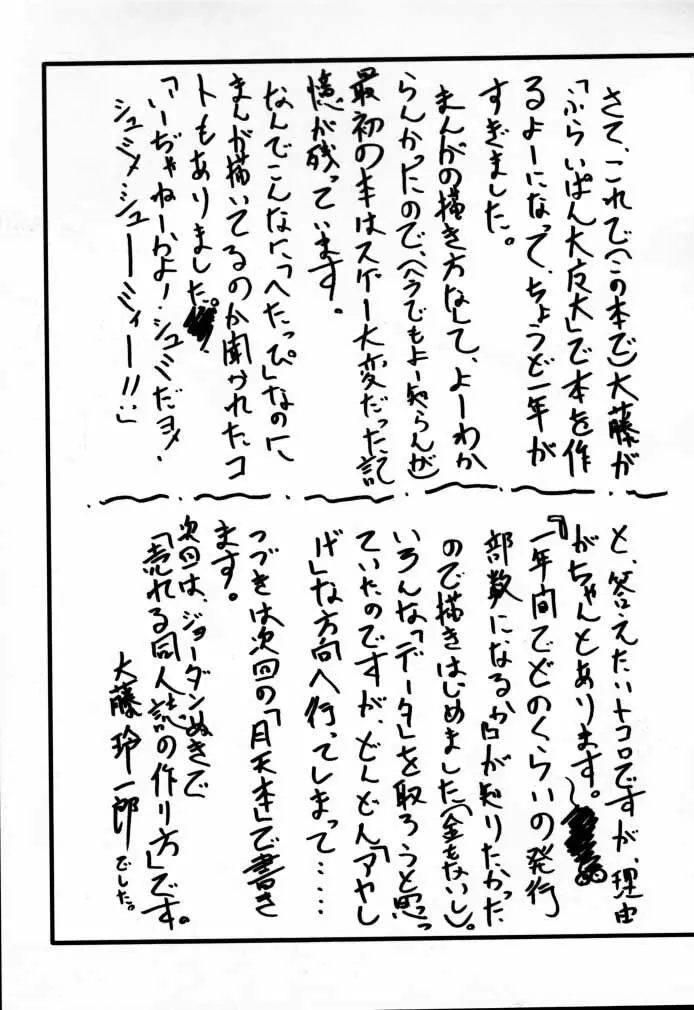 さて、これで(この本で)大藤が
「ふらいぱん大大」で本を作
るよーになって、ちょうど一年が
すぎました。
まんがの描き方なして、よーわか
らんかったので、(今でもよー知らんが)
最初の本はスゲー大変だった記
憶が残っています。
なんでこんなに、「へたっぴ」なのに、
まんが描いてるのか聞かれたコ
トもありました。
「いーぢゃねーかよ!シュミだヨ!
シュミシューミィー!!」
と、答えたいトコロですが、理由
がちゃんとあります。
『一年間でどのくらいの発行
部数になるか』が知りたかった
ので描きはじめました(金もないし)。
いろんな「データ」を取ろうと思っ
ていたのですが、どんどん「アヤし
げ」な方向へ行ってしまって……
つづきは次回の「月天本」で書き
ます。
次回は、ジョーダンぬきで
「売れる同人誌の作り方」です。
大藤玲一郎でした。